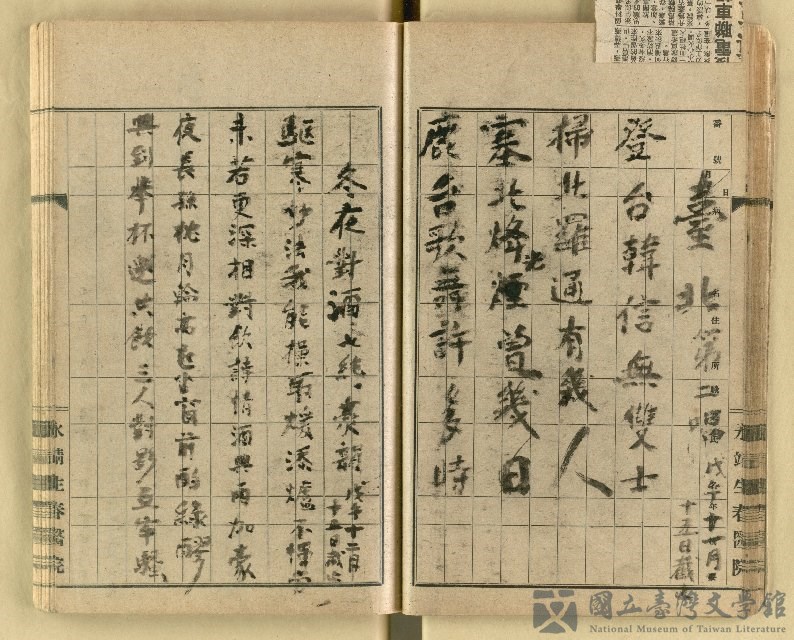 臺北第二唱 戊午年十一月
十五日截
登台韓信無雙士
掃北羅通有幾人
塞北烽煙曾幾日
光
鹿台歌舞許多時
永靖生春醫院
冬夜對酒 七絕 豪韻 戊午十二月
十五日截
驅寒妙法我能操 最煖添爐不憚勞
未若更深相對飲 詩情酒興兩加豪
夜長孤枕月輪高 起坐窗前酌綠醪
興到舉杯邀共飲 三人對影互牢騷
永靖生春醫院
國立臺灣文學館
National Museum of Taiwan Literature